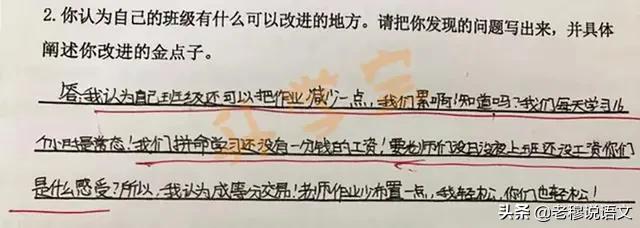 2. 你认为自己的班级有什么可以改进的地方。请把你发现的问题写出来，并具体
阐述你改进的金点子。
答：我认为自己班级还可以把作业减少一点，我们累啊！知道吗？我们每天学习16
个小时是常态！我们拼命学习还没有一分钱的工资！要老师们没日没夜上班还没工资你们
是什么感受？所以，我认为成等分交易！老师作业少布置一点，我轻松，你们也轻松！
头条 @老穆说语文